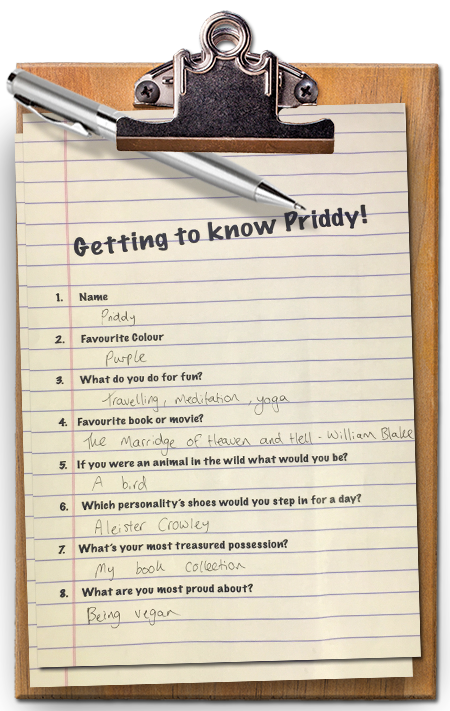 Getting to know Priddy!
1. Name
Priddy
2. Favourite Colour
Purple
3. What do you do for fun?
Travelling, meditation, yoga
4. Favourite book or movie?
The Marridge of Heaven and Hell - William Blake
5. If you were an animal in the wild what would you be?
A bird
6. Which personality's shoes would you step in for a day?
Aleister Crowley
7. What's your most treasured possession?
My book collection
8. What are you most proud about?
Being vegan